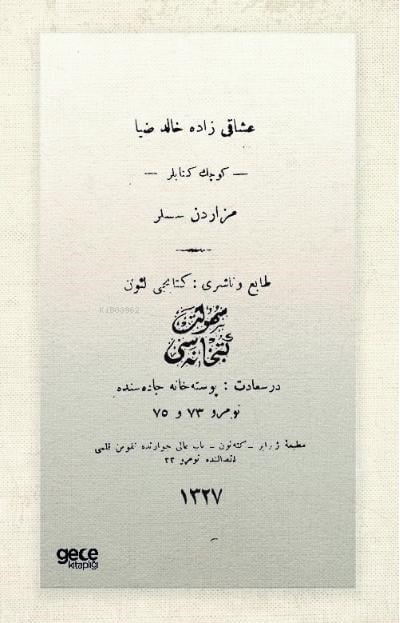 عشاقی زاده خالد ضیا
— كوچك كتابلر —
مزاردن سسلر
طابع و ناشری : كتابجی لئون
سهولت
كتبخانه سی
درسعادت : پوسته خانه جاده سنده
نومرو ۷۳ و ۷۵
مطبعهٔ ژیرایر - كته‌ئون - باب عالی جوارنده نفوس قلمی
اتصالنده نومرو ۲۲
۱۳۲۷
gece
kitaplığı